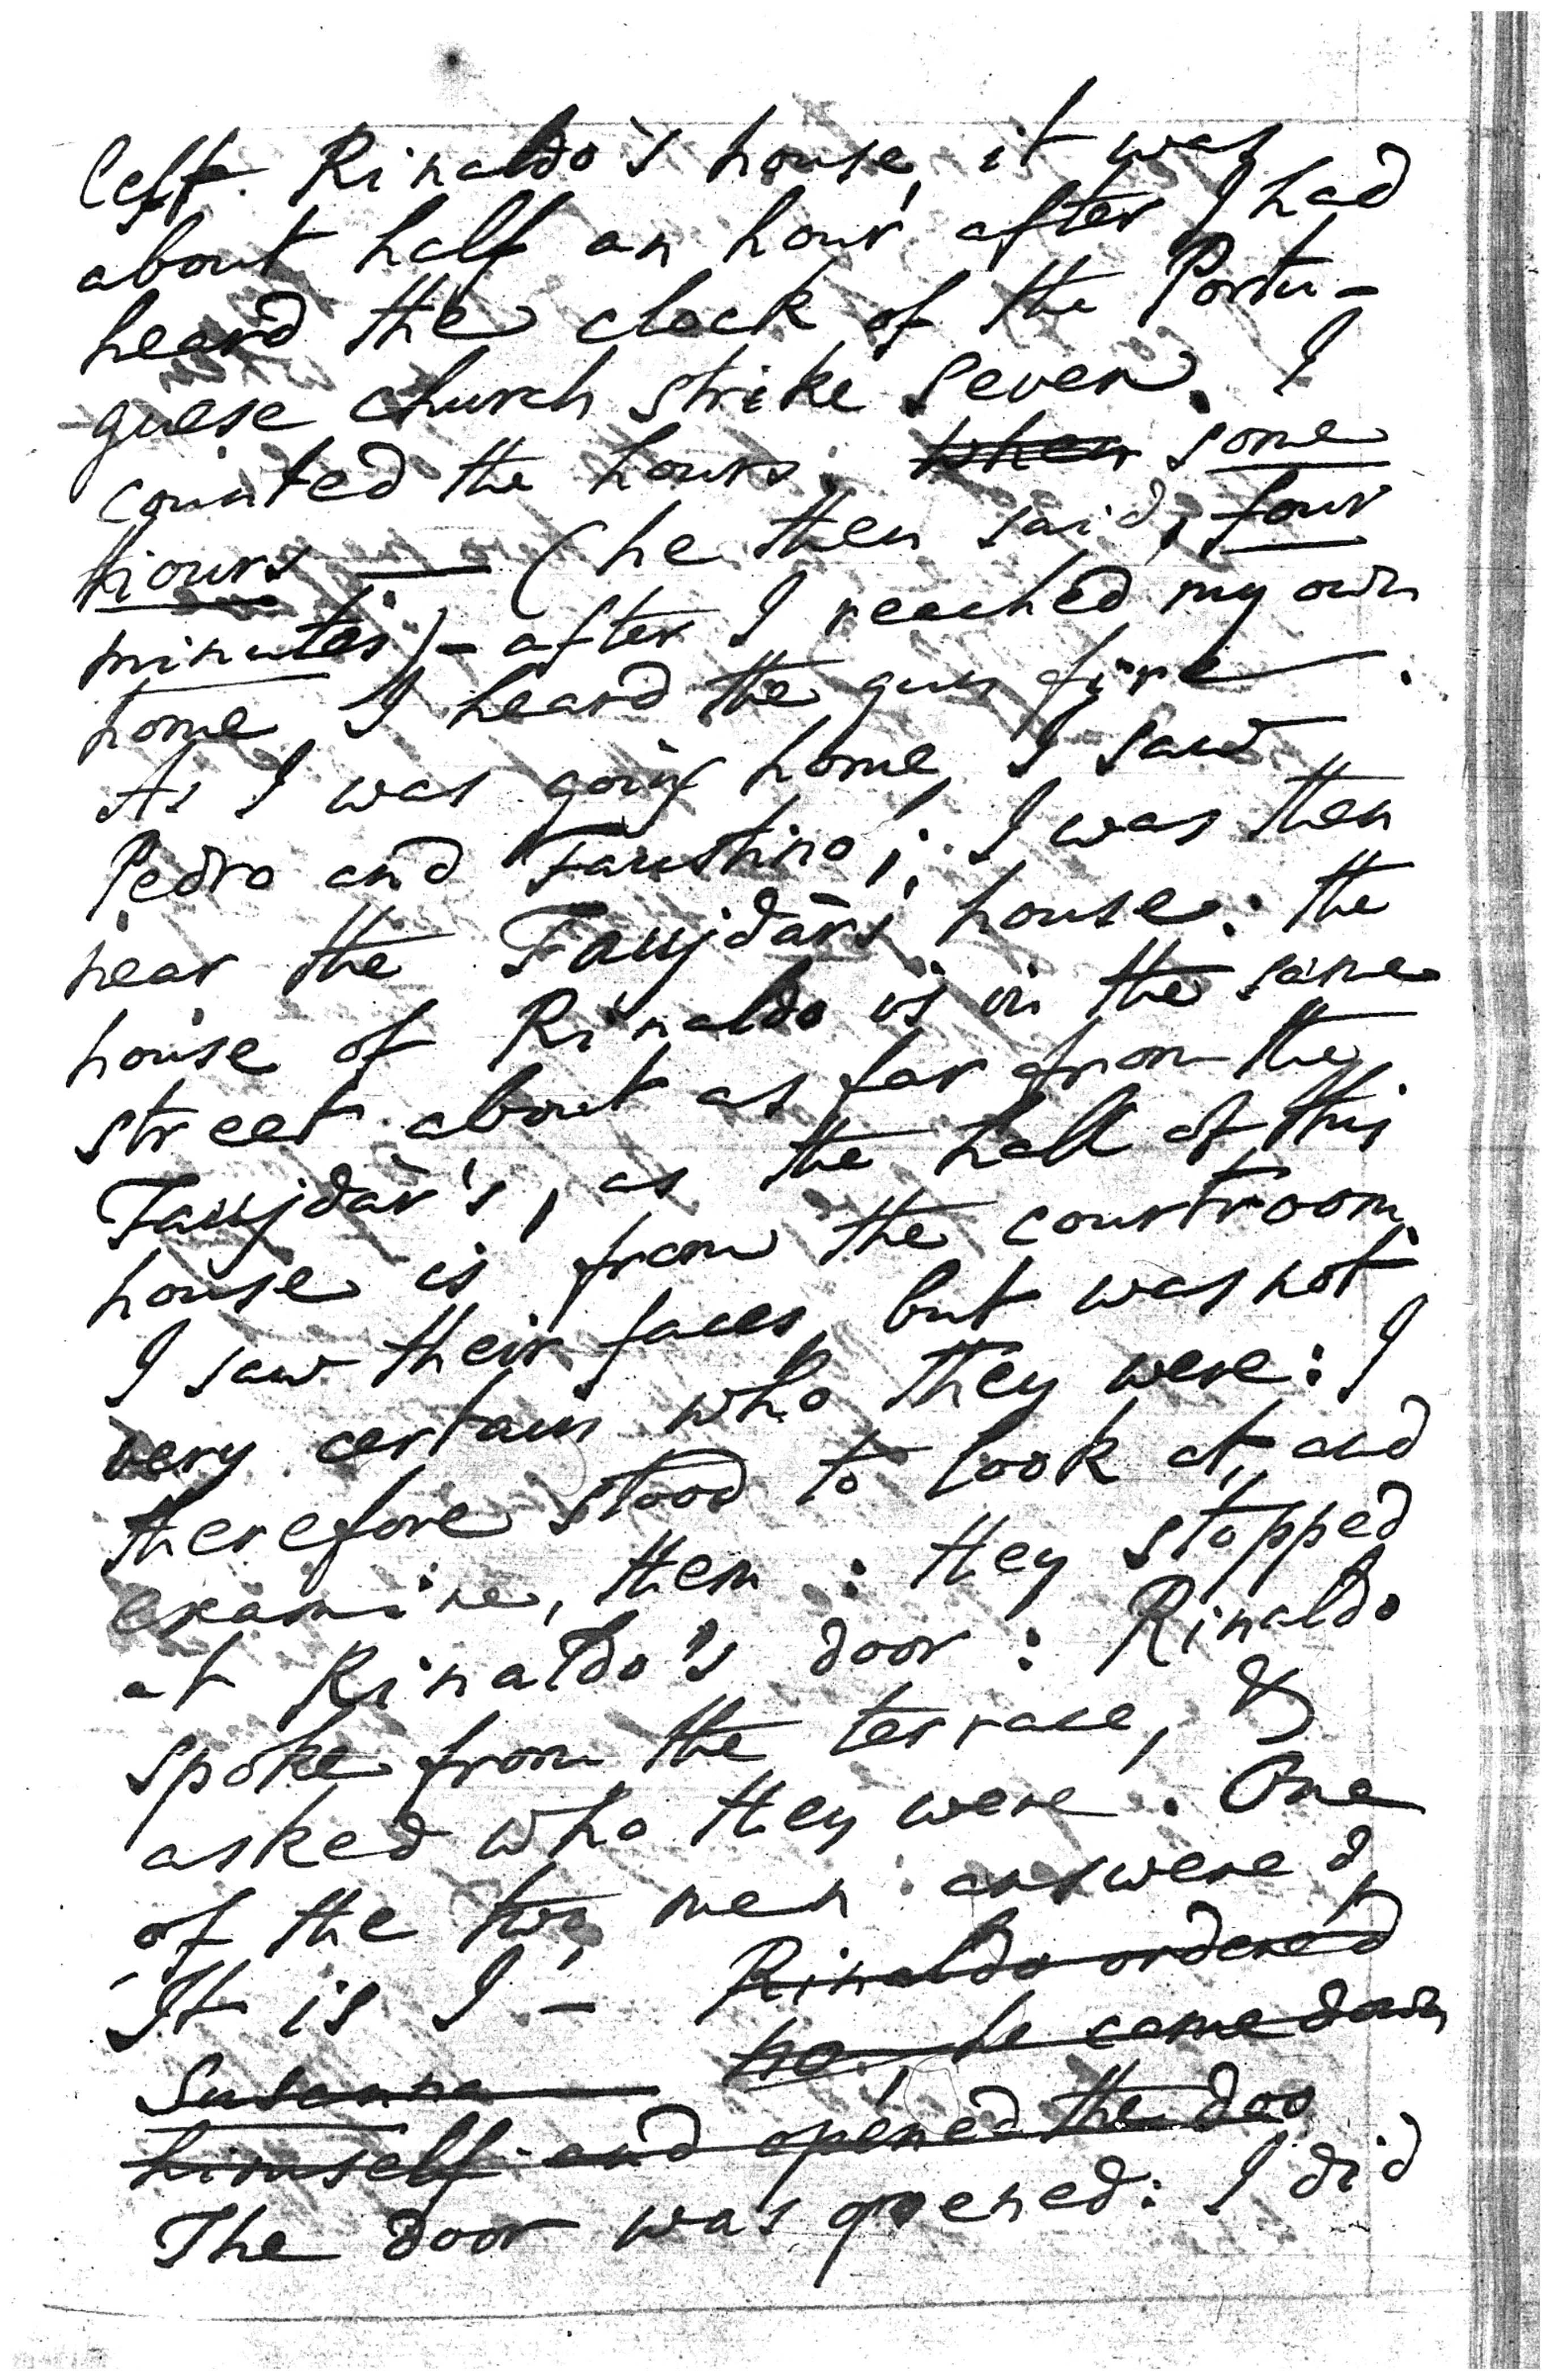 left Rinaldo's house, it was
about half an hour after I had
heard the clock of the Portu-
guese church strike seven. I
counted the hours; when some
hours — (he then said, four
minutes) – after I reached my own
home I heard the gun fire.
As I was going home, I saw
Pedro and Faustino; I was then
near the Faujdār's house: the
house of Rinaldo is in the same
street about as far from the
Faujdār's, as the hall of this
house is from the courtroom.
I saw their faces, but was not
very certain who they were: I
therefore stood to look at, and
examine, them: they stopped
at Rinaldo's door: Rinaldo
spoke from the terrace, &
asked who they were. One
of the two men answered,
'It is I' – Rinaldo ordered
Susanna — no, he came down
himself and opened the doo
The door was opened: I did